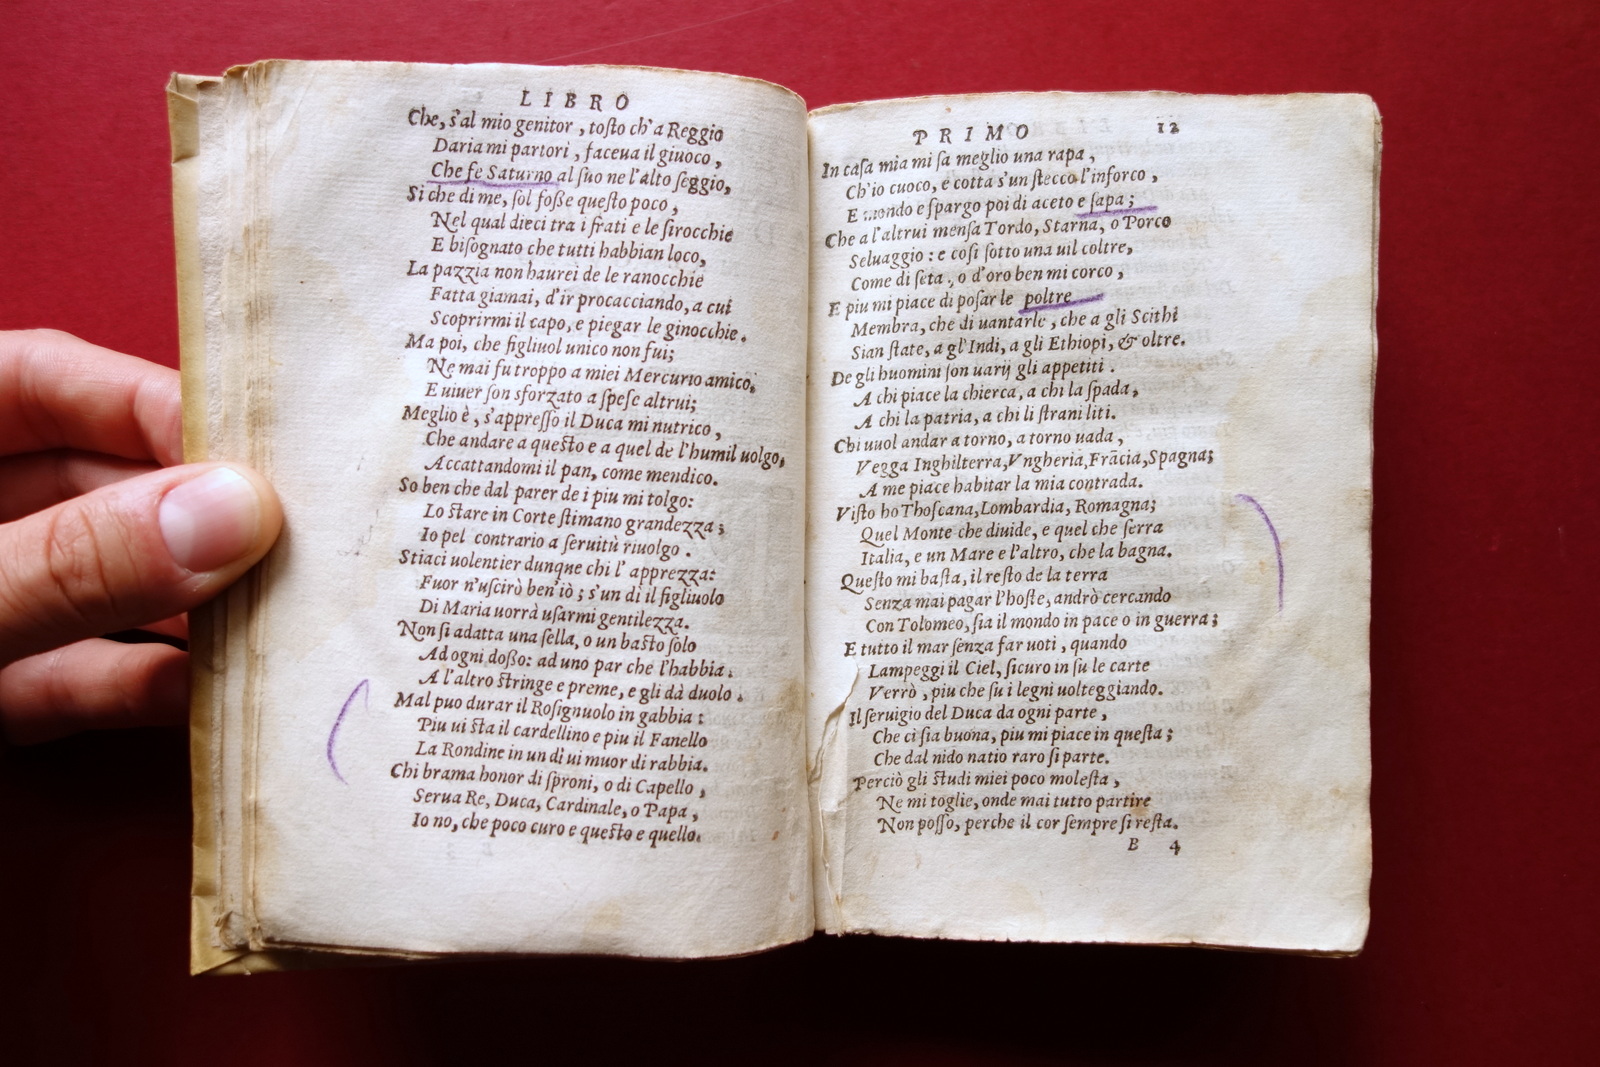 LIBRO
Che, s'al mio genitor, tosto ch'a Reggio
Daria mi partori, faceua il giuoco,
Che fe Saturno al suo ne l'alto seggio,
Si che di me, sol fosse questo poco,
Nel qual dieci tra i frati e le sirocchie
E bisognato che tutti habbian loco,
La pazzia non haurei de le ranocchie
Fatta giamai, d'ir procacciando, a cui
Scoprirmi il capo, e piegar le ginocchie.
Ma poi, che figliuol unico non fui;
Ne mai fu troppo a miei Mercurio amico,
E uiuer son sforzato a spese altrui;
Meglio è, s'appresso il Duca mi nutrico,
Che andare a questo e a quel de l'humil uolgo,
Accattandomi il pan, come mendico.
So ben che dal parer de i piu mi tolgo:
Lo stare in Corte stimano grandezza;
Io pel contrario a seruitù riuolgo.
Stiaci uolentier dunque chi l'apprezza:
Fuor n'uscirò ben'iò; s'un di il figliuolo
Di Maria uorrà usarmi gentilezza.
Non si adatta una sella, o un basto solo
Ad ogni dosso: ad uno par che l'habbia,
A l'altro stringe e preme, e gli dà duolo.
Mal puo durar il Rosignuolo in gabbia:
Piu ui sta il cardellino e piu il Fanello
La Rondine in un dì ui muor di rabbia.
Chi brama honor di sproni, o di Capello,
Serua Re, Duca, Cardinale, o Papa,
Io no, che poco curo e questo e quello.
PRIMO 12
In casa mia mi sa meglio una rapa,
Ch'io cuoco, e cotta s'un stecco l'inforco,
E mondo e spargo poi di aceto e sapa;
Che a l'altrui mensa Tordo, Starna, o Porco
Seluaggio: e cosi sotto una uil coltre,
Come di seta, o d'oro ben mi corco,
E piu mi piace di posar le poltre
Membra, che di uantarle, che a gli Scithi
Sian state, a gl'Indi, a gli Ethiopi, & oltre.
De gli huomini son uarij gli appetiti.
A chi piace la chierca, a chi la spada,
A chi la patria, a chi li strani liti.
Chi uuol andar a torno, a torno uada,
Vegga Inghilterra, Vngheria, Frãcia, Spagna;
A me piace habitar la mia contrada.
Visto ho Thoscana, Lombardia, Romagna;
Quel Monte che diuide, e quel che serra
Italia, e un Mare e l'altro, che la bagna.
Questo mi basta, il resto de la terra
Senza mai pagar l'hoste, andrò cercando
Con Tolomeo, sia il mondo in pace o in guerra;
E tutto il mar senza far uoti, quando
Lampeggi il Ciel, sicuro in su le carte
Verrò, piu che su i legni uolteggiando.
Il seruigio del Duca da ogni parte,
Che ci sia buona, piu mi piace in questa;
Che dal nido natio raro si parte.
Perciò gli studi miei poco molesta,
Ne mi toglie, onde mai tutto partire
Non posso, perche il cor sempre si resta.
B 4